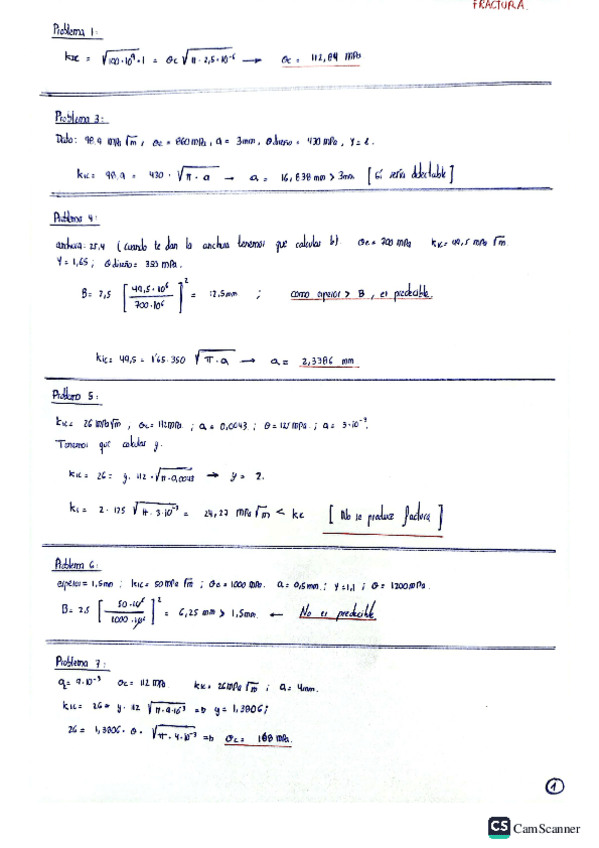 FRACTURA.
Problema 1:
= σc √π · 2,5·10⁻⁶ → σc = 112,84 MPa
Problema 3:
Datos: 98.9 MPa √m, σc = 860 MPa, a = 3mm, σdiseño = 430 MPa, Y = 1.
KIc = 98,9 = 430 · √π · a → a = 16,838 mm > 3mm [Sí sería detectable]
Problema 4:
anchura: 25,4 (cuando te dan la anchura tenemos que calcular b) σc = 700 MPa KIc = 49,5 MPa √m
Y = 1,65; σ diseño = 350 MPa.
B = 2,5 [49,5·10⁶ / 700·10⁶]² = 12,5mm ; como espesor > B, es predecible.
KIc = 49,5 = 1'65·350 √π·a → a = 2,3386 mm
Problema 5:
KIc = 26 MPa√m, σc = 112 MPa. ; a = 0,0043 ; σ = 125 MPa. ; a = 3·10⁻³.
Tenemos que calcular y.
KIc = 26 = y. 112 · √π·0,0043 → y = 2.
KI = 2 · 125 √π·3·10⁻³ = 24,27 MPa √m < Kc [No se produce fractura]
Problema 6:
espesor = 1,5mm ; KIc = 50 MPa √m ; σc = 1000 MPa. a = 0,5mm. ; y = 1,1 ; σ = 1200 MPa.
B = 2.5 [50·10⁶ / 1000·10⁶]² = 6,25 mm > 1,5mm. ← No es predecible.
Problema 7:
σc = 112 MPa KIc = 26 MPa √m ; a = 4mm.
KIc = 26 = y · 112 => y = 1,3806;
26 = 1,3806 · σ · √π · 4·10⁻³ => σc = 168 MPa.
1
CS CamScanner